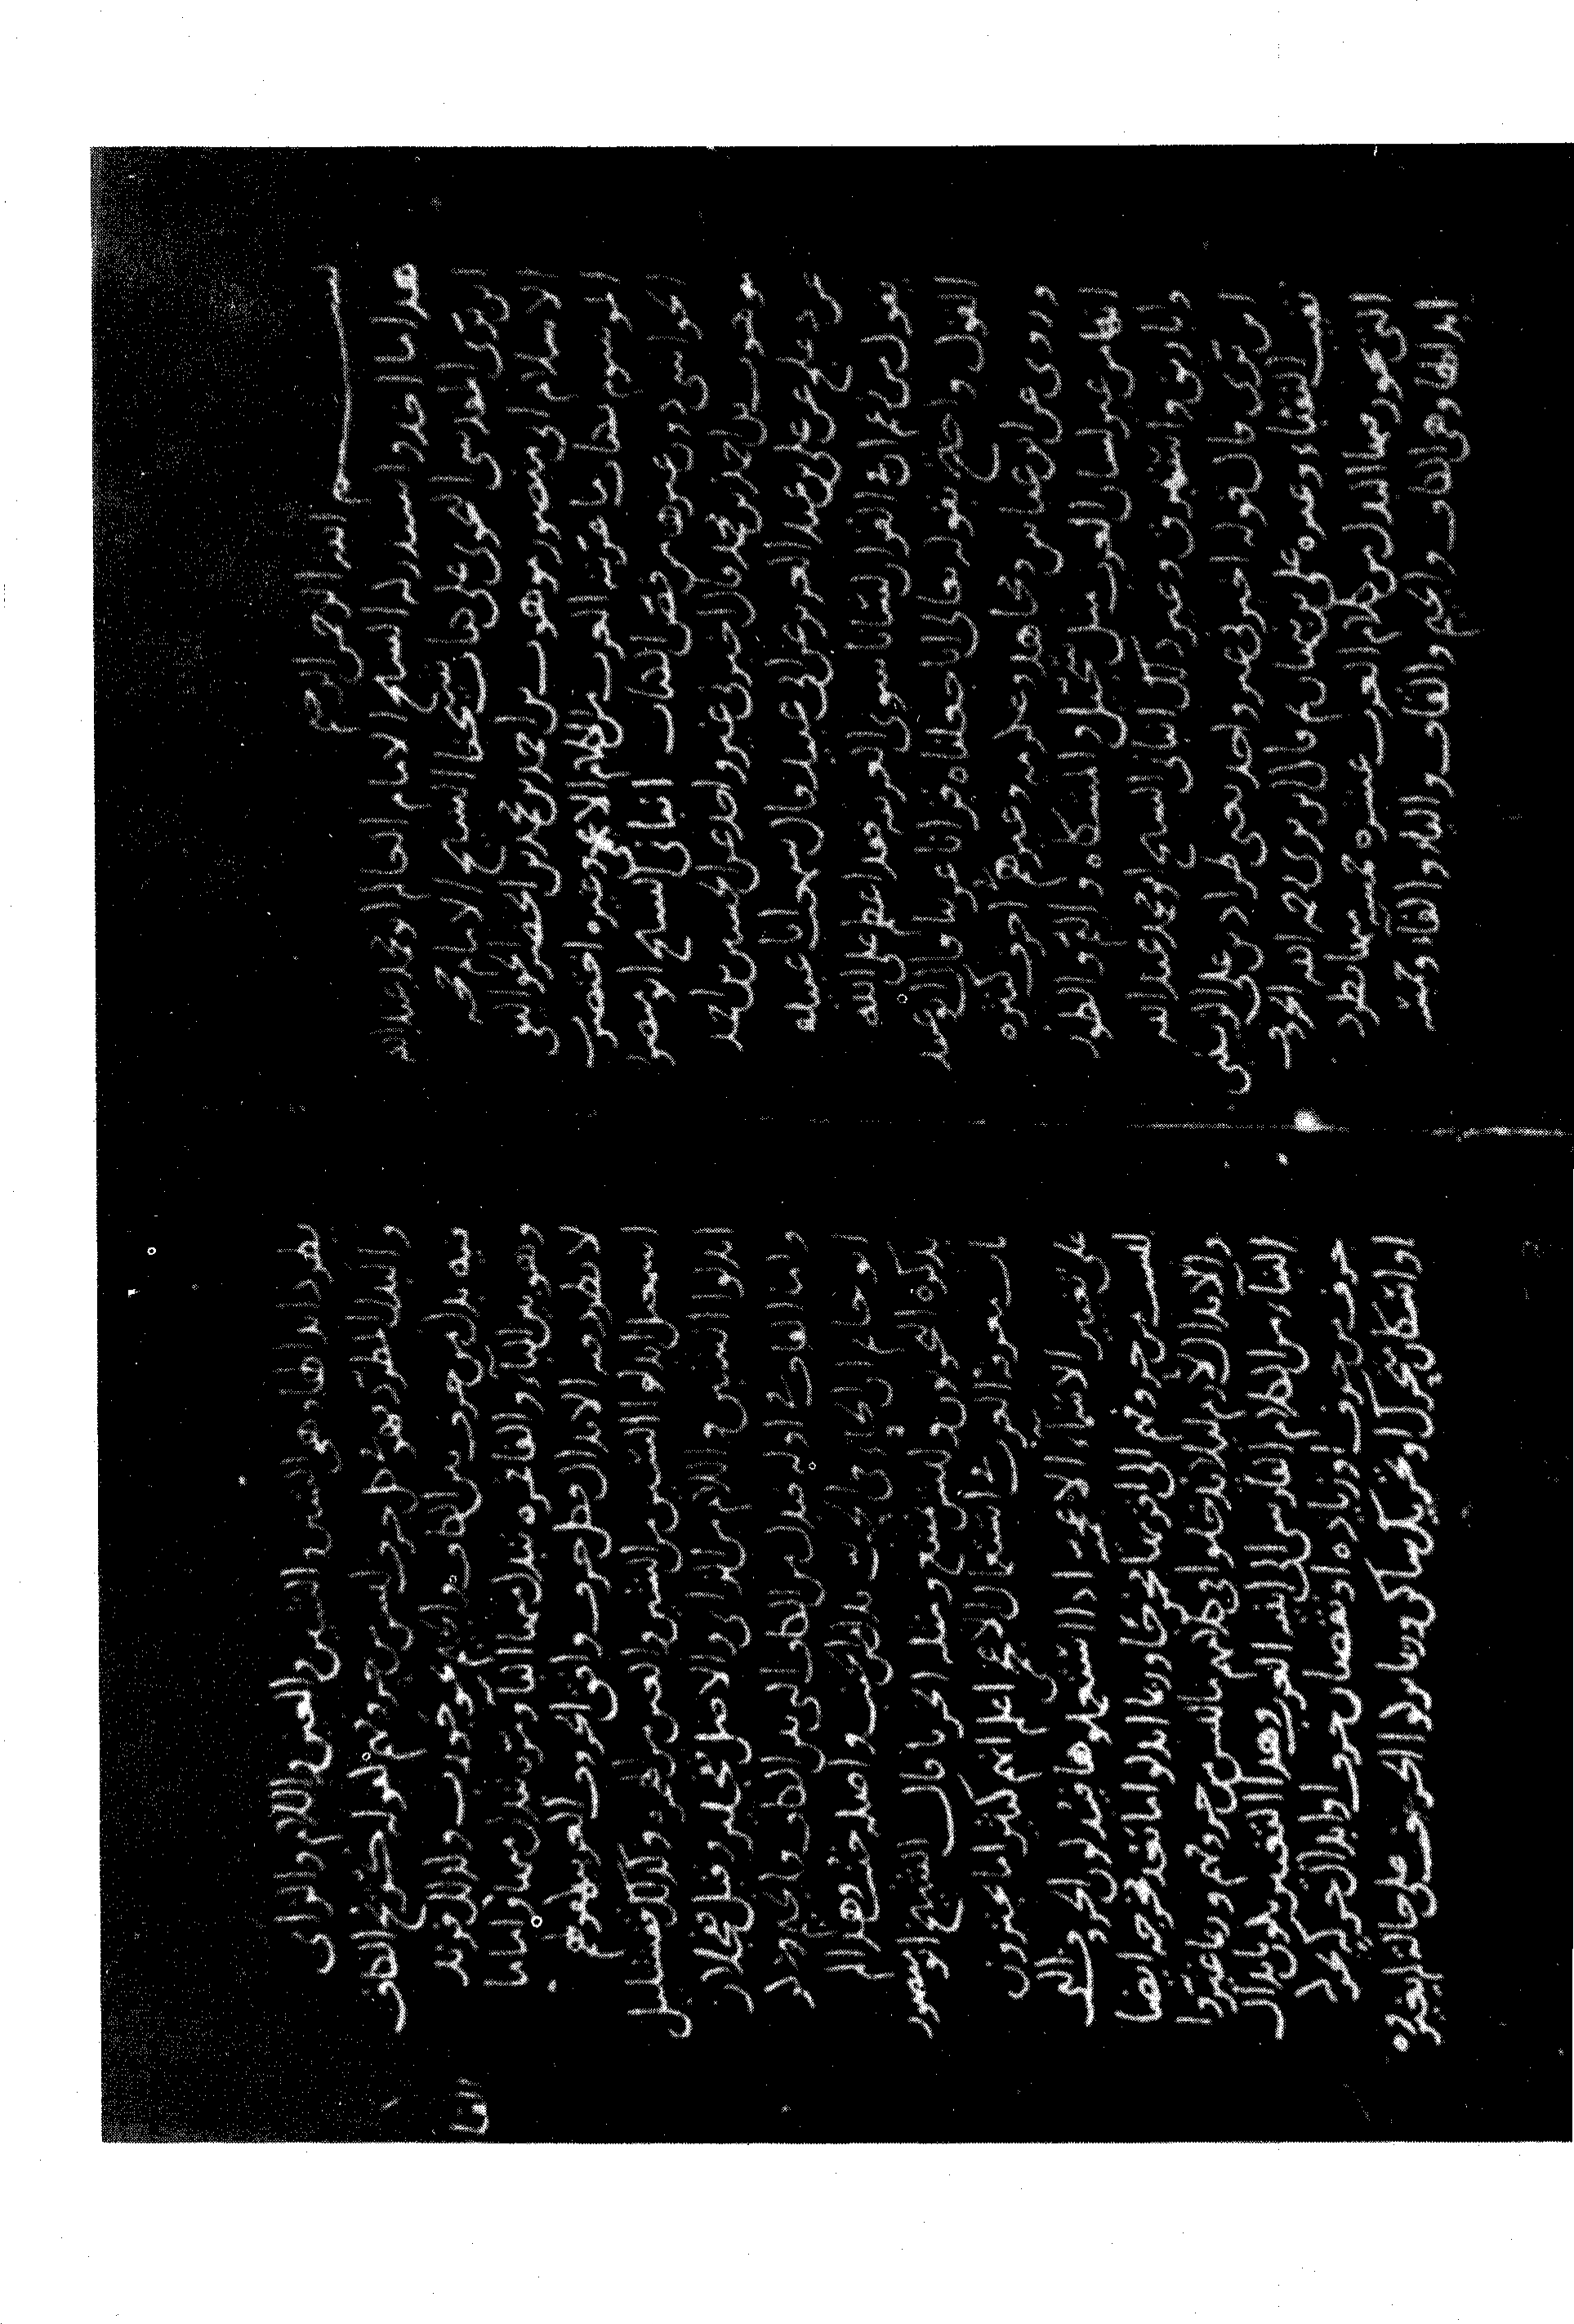 بسم الله الرحمن الرحيم
هذا ما اخذ واستدركه الشيخ الامام العالم ابو محمد عبد الله
ابن بري المقدسي النحوي على كتاب شيخنا الشيخ الامام حجة
الاسلام ابي منصور موهوب بن احمد بن محمد بن الخضر الجواليقي
الموسوم بكتاب ما عربته العرب من الكلام الاعجمي وغيره اختصرت
الحواشي دون غيرها من نقص الكتاب انباني الشيخ ابو منصور
موهوب بن احمد بن محمد قال اخبرني غير واحد عن الحسن بن احمد
عن دعلج عن علي بن عبد العزيز عن ابي عبيد قال سمعت ابا عبيدة
يقول من زعم ان في القران لسانا سوى العربية فقد اعظم على الله
القول واحتج بقوله تعالى انا جعلناه قرانا عربيا قال ابو عبيد
وروى عن ابن عباس ومجاهد وعكرمة وغيرهم في احرف كثيرة
انها من غير لسان العرب مثل سجيل والمشكاه واليم والطور
واباريق واستبرق وغير ذلك انباني الشيخ ابو محمد عبد الله
ابن بري قال قوله اخبرني غير واحد يعني طراد بن علي الزينبي
نقيب النقباء وغيره علي بن نبهان ثم قال ابن بري رحمه الله الحروف
التي يجوز فيها البدل من كلام العرب عشرة خمسة منها يطرد
ابدالها وهي الكاف والجيم والقاف والباء والفاء وخمسة
يطرد ابدالها وهي السين والشين والعين واللام والزاي
والبدل المطرد هو في كل حرف ليس من حروفهم كقولهم كربج الكاف
فيه بدل من حرف بين الكاف والجيم نحو جورب وكذلك فرند
وهو بين الباء والفاء فمرة تبدل منها الفاء ومرة تبدل منها الباء واما ما
لا يطرد فيه الابدال فكل حرف وافق الحروف العربية كقولهم
اسمعيل ابدلوا السين من الشين والعين من الهمزة وكذلك قفشليل
ابدلوا الشين من الجيم واللام من الزاي والاصل
واما القاف في اوله فبدل من الكاف التي بين الكاف والجيم وحكى
ابو حاتم ان الحاء في الحب بدل من الخاء واصله خنب وهذا لم
يذكره النحويون وليس بممتنع قال الشيخ ابو منصور
باب معرفة العرب في استعمال الاعجمي اعلم انهم كثيرا ما يجترئون
على تغيير الاسماء الاعجمية اذا استعملوها فيبدلون الحروف التي
ليست من حروفهم الى اقربها مخرجا وربما ابدلوا ما بعد مخرجه ايضا
والابدال لازم لئلا يدخلوا في كلامهم ما ليس من حروفهم وربما غيروا
البناء من الكلام الفارسي الى ابنية العرب وهذا التغيير يكون بابدال
حرف من حرف او زيادة او نقصان حرف او ابدال حركة بحركة
او اسكان متحرك او تحريك ساكن وربما تركوا الحرف على حاله لم يغيروه